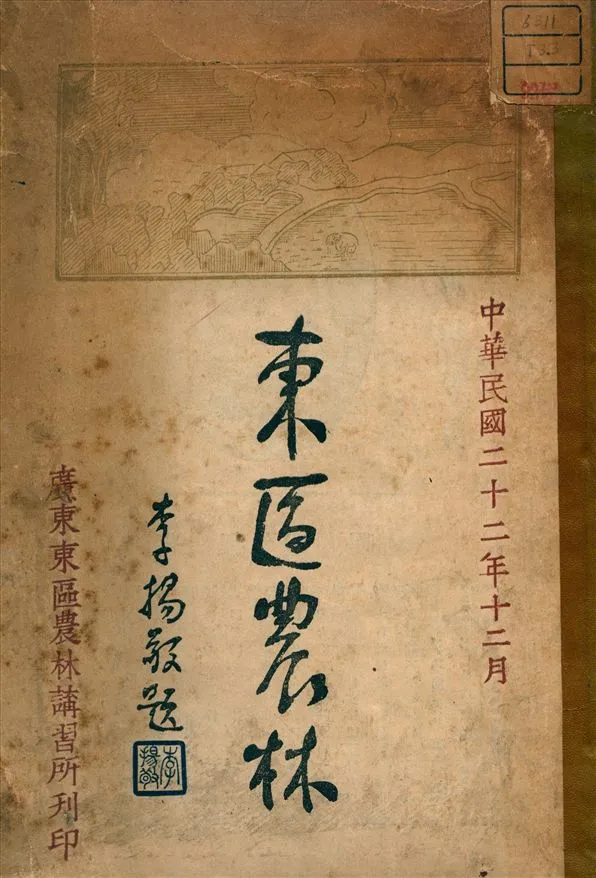 6311
T3.3
中華民國二十二年十二月
東區農林
李揚敬題
李揚敬
廣東東區農林講習所刊印